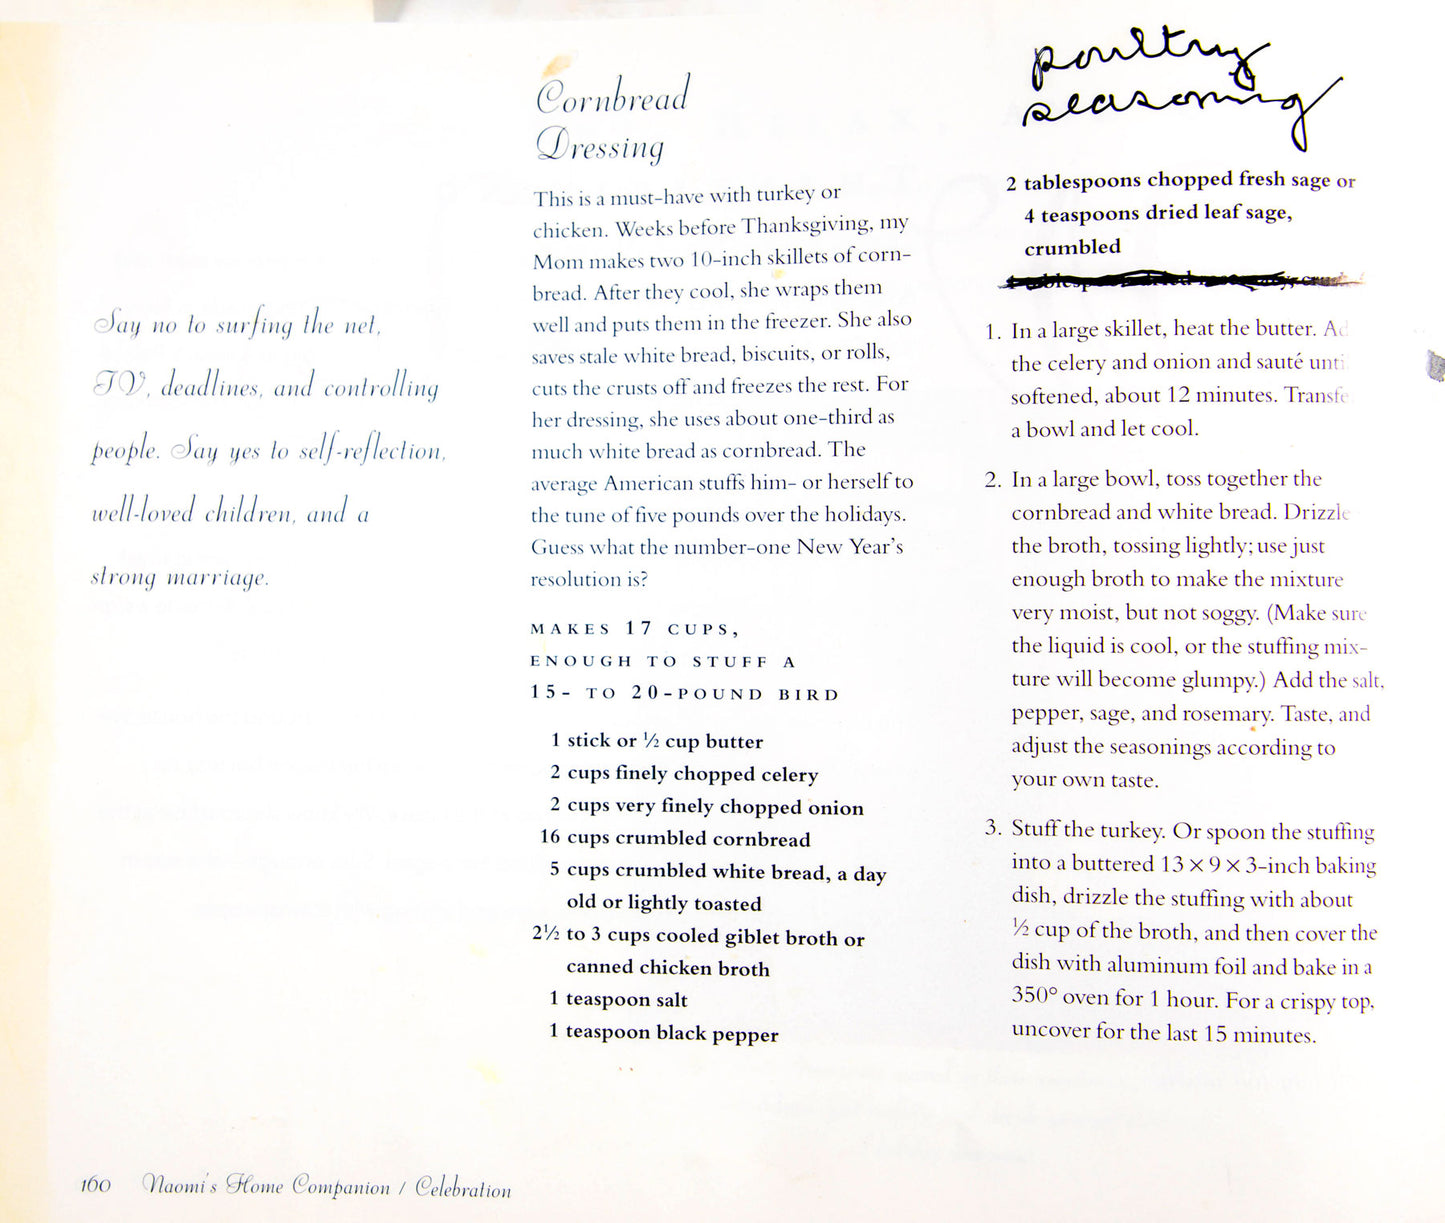 Say no to surfing the net,
TV, deadlines, and controlling
people. Say yes to self-reflection,
well-loved children, and a
strong marriage.
Cornbread
Dressing
This is a must-have with turkey or
chicken. Weeks before Thanksgiving, my
Mom makes two 10-inch skillets of corn-
bread. After they cool, she wraps them
well and puts them in the freezer. She also
saves stale white bread, biscuits, or rolls,
cuts the crusts off and freezes the rest. For
her dressing, she uses about one-third as
much white bread as cornbread. The
average American stuffs him- or herself to
the tune of five pounds over the holidays.
Guess what the number-one New Year's
resolution is?
MAKES 17 CUPS,
ENOUGH TO STUFF A
15- TO 20-POUND BIRD
1 stick or ½ cup butter
2 cups finely chopped celery
2 cups very finely chopped onion
16 cups crumbled cornbread
5 cups crumbled white bread, a day
old or lightly toasted
2½ to 3 cups cooled giblet broth or
canned chicken broth
1 teaspoon salt
1 teaspoon black pepper
poultry
seasoning
2 tablespoons chopped fresh sage or
4 teaspoons dried leaf sage,
crumbled
1. In a large skillet, heat the butter. Ad
the celery and onion and sauté unti
softened, about 12 minutes. Transfe
a bowl and let cool.
2. In a large bowl, toss together the
cornbread and white bread. Drizzle
the broth, tossing lightly; use just
enough broth to make the mixture
very moist, but not soggy. (Make sure
the liquid is cool, or the stuffing mix-
ture will become glumpy.) Add the salt,
pepper, sage, and rosemary. Taste, and
adjust the seasonings according to
your own taste.
3. Stuff the turkey. Or spoon the stuffing
into a buttered 13 × 9 × 3-inch baking
dish, drizzle the stuffing with about
½ cup of the broth, and then cover the
dish with aluminum foil and bake in a
350° oven for 1 hour. For a crispy top,
uncover for the last 15 minutes.
160 Naomi's Home Companion / Celebration